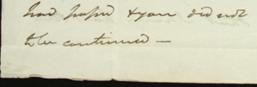 had passed & you did not
to be continued —